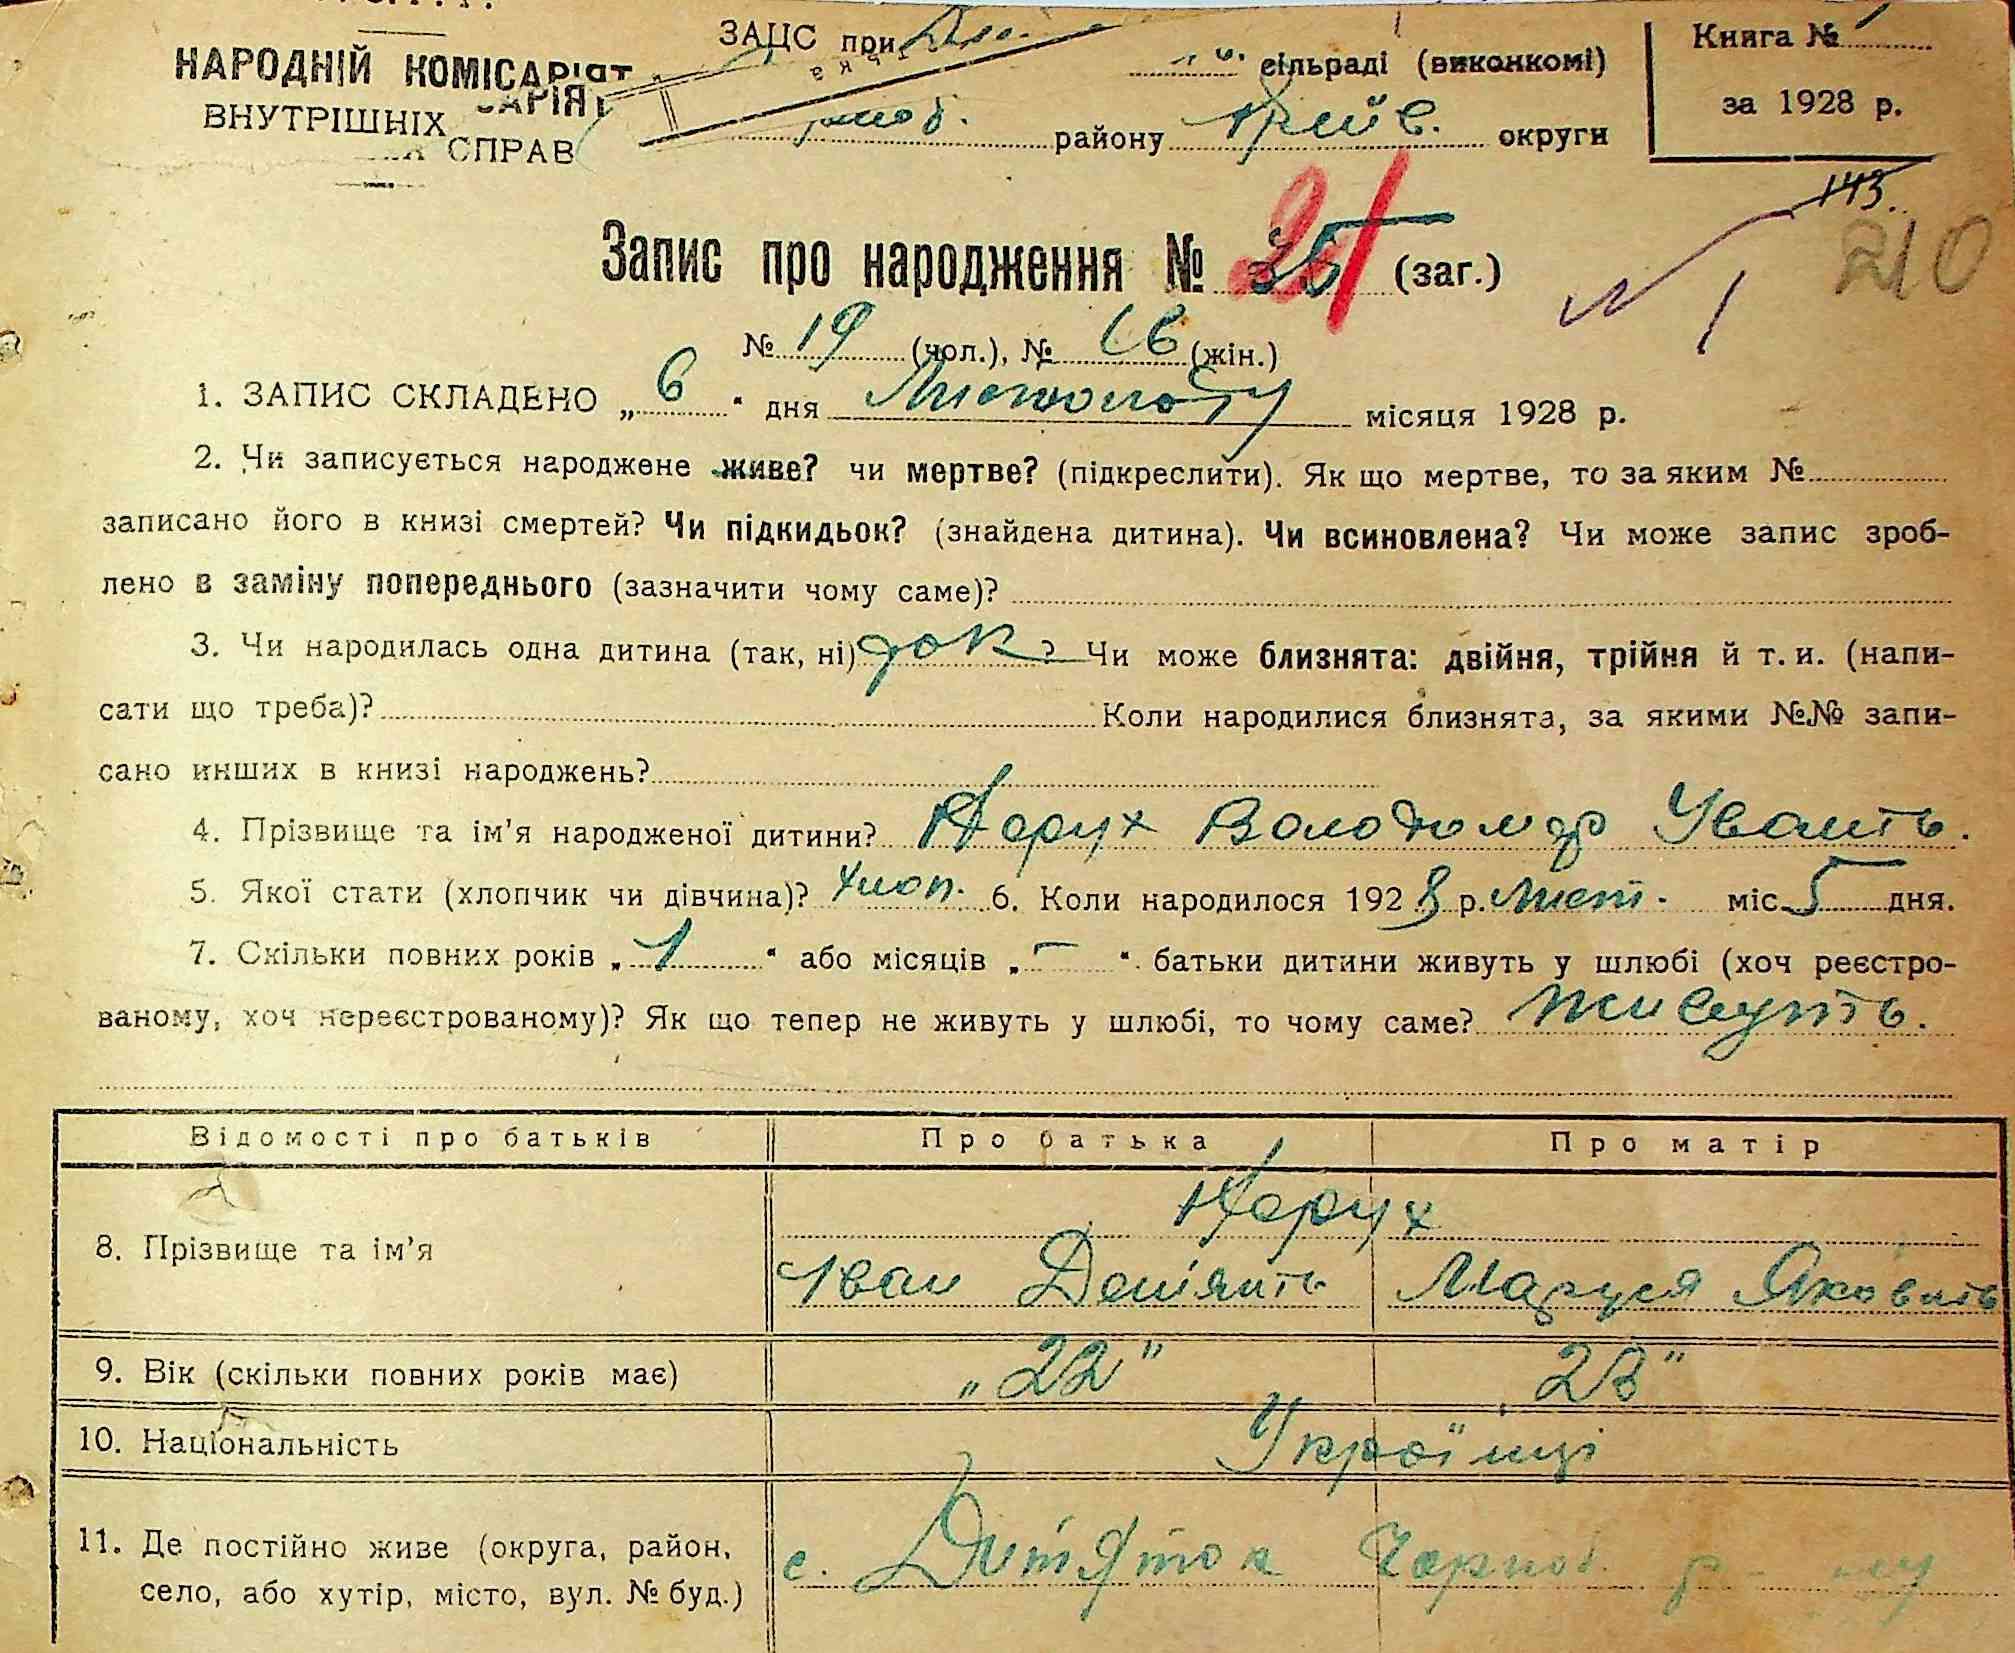 НАРОДНІЙ КОМІСАРІЯТ
ВНУТРІШНІХ СПРАВ
ЗАЦС при сільраді (виконкомі)
району Київ. округи
Книга №
за 1928 р.
143.
210
Запис про народження № 35 (заг.)
21
№ 1
№ 19 (чол.), № 16 (жін.)
1. ЗАПИС СКЛАДЕНО „ 6 “ дня Листопаду місяця 1928 р.
2. Чи записується народжене живе? чи мертве? (підкреслити). Як що мертве, то за яким №
записано його в книзі смертей? Чи підкидьок? (знайдена дитина). Чи всиновлена? Чи може запис зроб-
лено в заміну попереднього (зазначити чому саме)?
3. Чи народилась одна дитина (так, ні) ? Чи може близнята: двійня, трійня й т. и. (напи-
сати що треба)? Коли народилися близнята, за якими №№ запи-
сано инших в книзі народжень?
4. Прізвище та ім'я народженої дитини? Володимир
5. Якої стати (хлопчик чи дівчина)? Хлоп. 6. Коли народилося 1928 р. Лист. міс. 5 дня.
7. Скільки повних років „ 1 “ або місяців „ – “ батьки дитини живуть у шлюбі (хоч реєстро-
ваному, хоч нереєстрованому)? Як що тепер не живуть у шлюбі, то чому саме? живуть.
Відомості про батьків Про батька Про матір
8. Прізвище та ім'я
Іван Маруся
9. Вік (скільки повних років має) „22” 23”
10. Національність Українці
11. Де постійно живе (округа, район, с. Дитяток Чорноб.
село, або хутір, місто, вул. № буд.)